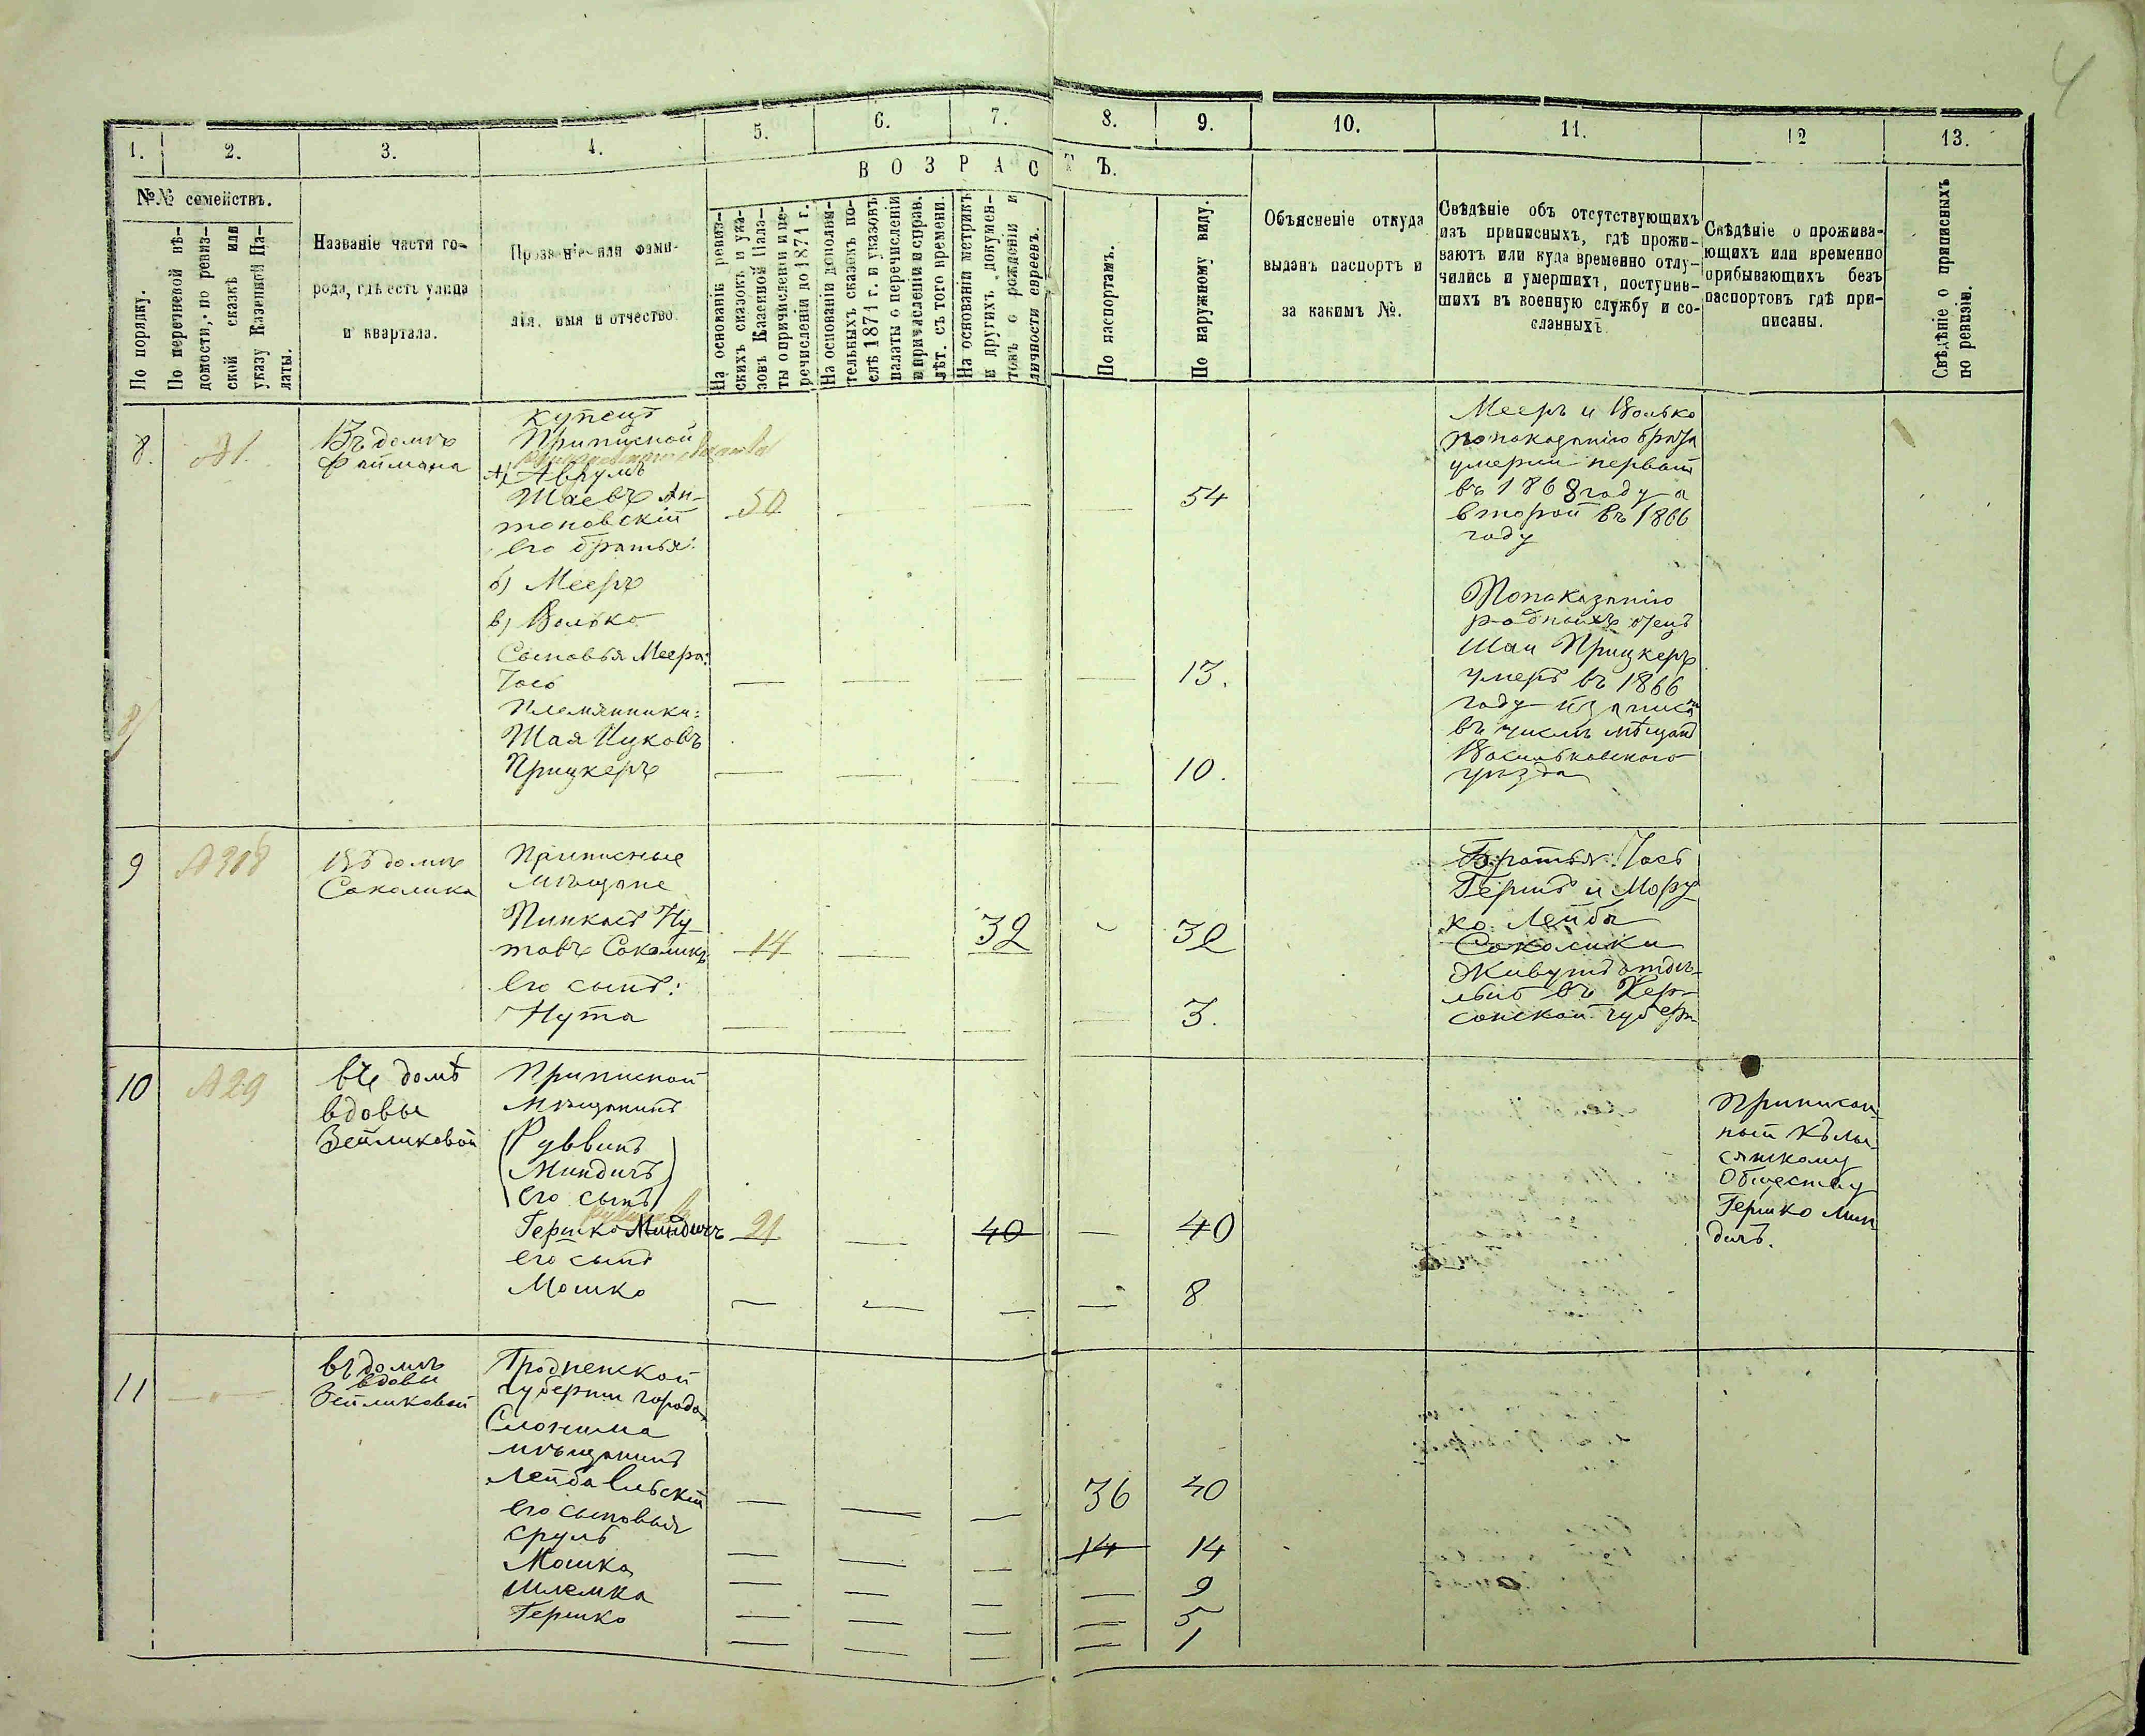 4
1.
2.
3.
4.
5.
6.
7.
8.
9.
10.
11.
12
13.
№№ семействъ.
ВОЗРАСТЪ.
По порядку.
По перечневой вѣ-
домости, по ревиз-
ской сказкѣ или
указу Казенной Па-
латы.
Названіе части го-
рода, гдѣ есть улица
и квартала.
Прозваніе или фами-
лія, имя и отчество.
На основаніи ревиз-
скихъ сказокъ и ука-
зовъ Казенной Пала-
ты о причисленіи и пе-
речисленіи до 1874 г.
На основаніи дополни-
тельныхъ сказокъ по-
слѣ 1874 г. и указовъ
палаты о перечисленіи
и причисленіи и справ.
лѣт. съ того времени.
На основаніи метрикъ
и другихъ докумен-
товъ о рожденіи и
личности евреевъ.
По паспортамъ.
По наружному виду.
Объясненіе откуда
выданъ паспортъ и
за какимъ №.
Свѣдѣніе объ отсутствующихъ
изъ приписныхъ, гдѣ прожи-
ваютъ или куда временно отлу-
чились и умершихъ, поступив-
шихъ въ военную службу и со-
сланныхъ.
Свѣдѣніе о прожива-
ющихъ или временно
прибывающихъ безъ
паспортовъ гдѣ при-
писаны.
Свѣдѣніе о приписныхъ
по ревизіи.
8.
№1.
Въ домѣ
Файмана
купецъ
Приписной
а) Аврумъ
Шаевъ Ан-
тоновскій
его братья:
б) Мееръ
в) Волько
Сыновья Меера:
Іось
Племянники:
Шая Ицковъ
Прицкеръ
50
54
13.
10.
Мееръ и Волько
по показанію брата
умерли первый
въ 1868 году а
второй въ 1866
году
По показанію
родныхъ отецъ
Шаи Прицкеръ
умеръ въ 1866
году и записанъ
въ числѣ мѣщанъ
Васильковского
уѣзда
9
№308
Въ домѣ
Соколика
Приписные
мѣщане
Пинкасъ Ну-
товъ Соколикъ
его сынъ:
Нута
14
32
32
3.
Братья: Іось
Гершъ и Морд
ко Лейба
Соколики
Живутъ отдѣ-
льно въ Хер-
сонской губерн
10
№29
въ домѣ
вдовы
Зейликовой
Приписной
мѣщанинъ
(Руввинъ
Миндичъ
его сынъ)
Гершко Миндичъ
его сынъ
Мошко
21
40
40
8
Приписан-
ный къ Лы-
сянскому
Обществу
Гершко Мин
дичъ.
11
въ домѣ
вдовы
Зейликовой
Гродненской
губерніи города
Слонима
мѣщанинъ
Лейба Ельскій
его сыновья
Сруль
Мошка
Шлемка
Гершко
36
40
14
14
9
5
1